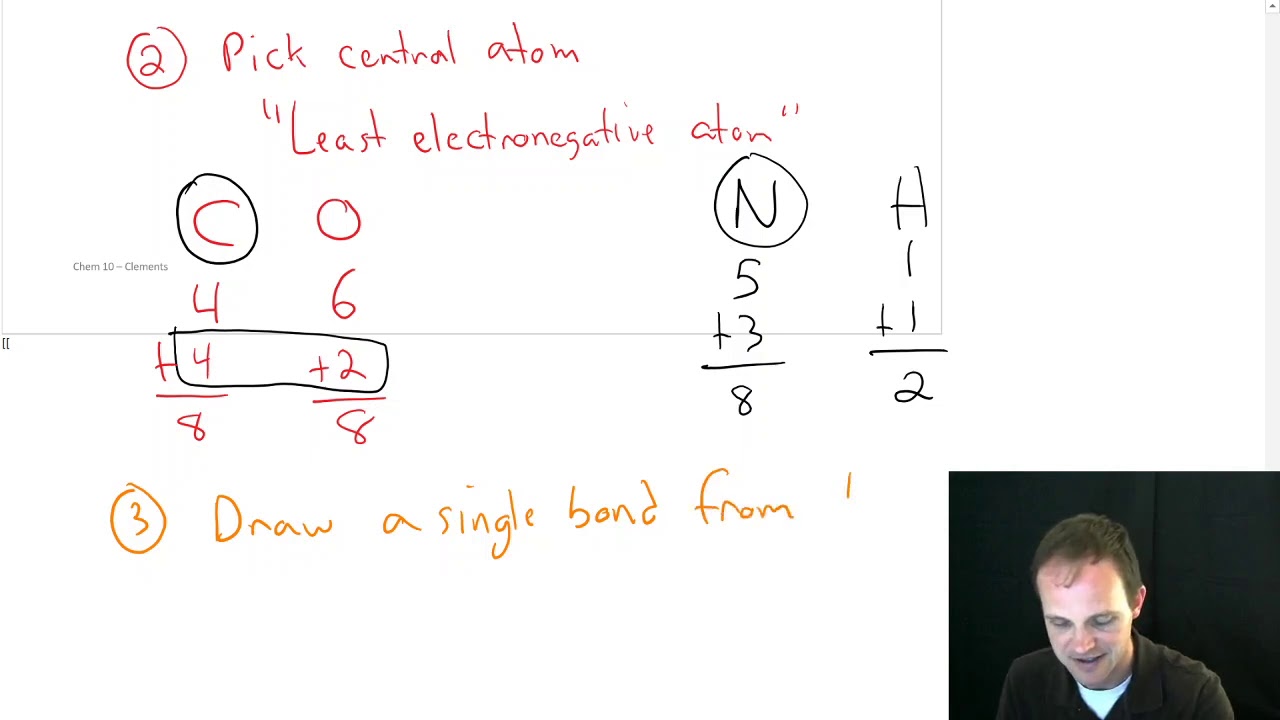 ② Pick central atom
"Least electronegative atom"
C O N H
Chem 10 – Clements
4 6 5 1
+4 +2 +3 +1
8 8 8 2
[[
③ Draw a single bond from